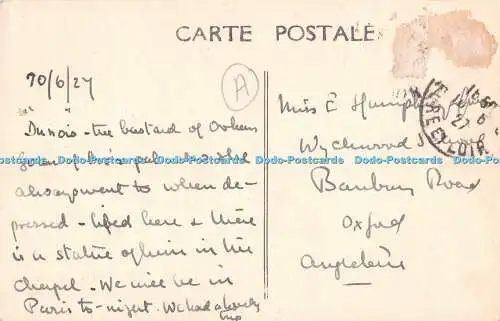 CARTE POSTALE
20/6/27
A
"Dunois" - the bastard of Orleans
always went to when de-
pressed - lived here & there
is a statue of him in the
chapel. We will be in
Paris to-night. We had a lovely
Miss E Humph
Wychwood S
Banbury Road
Oxford
Angleterre
Dodo-Postcards Dodo-Postcards Dodo-Postcards Dodo-Postcards Dodo-Postcards